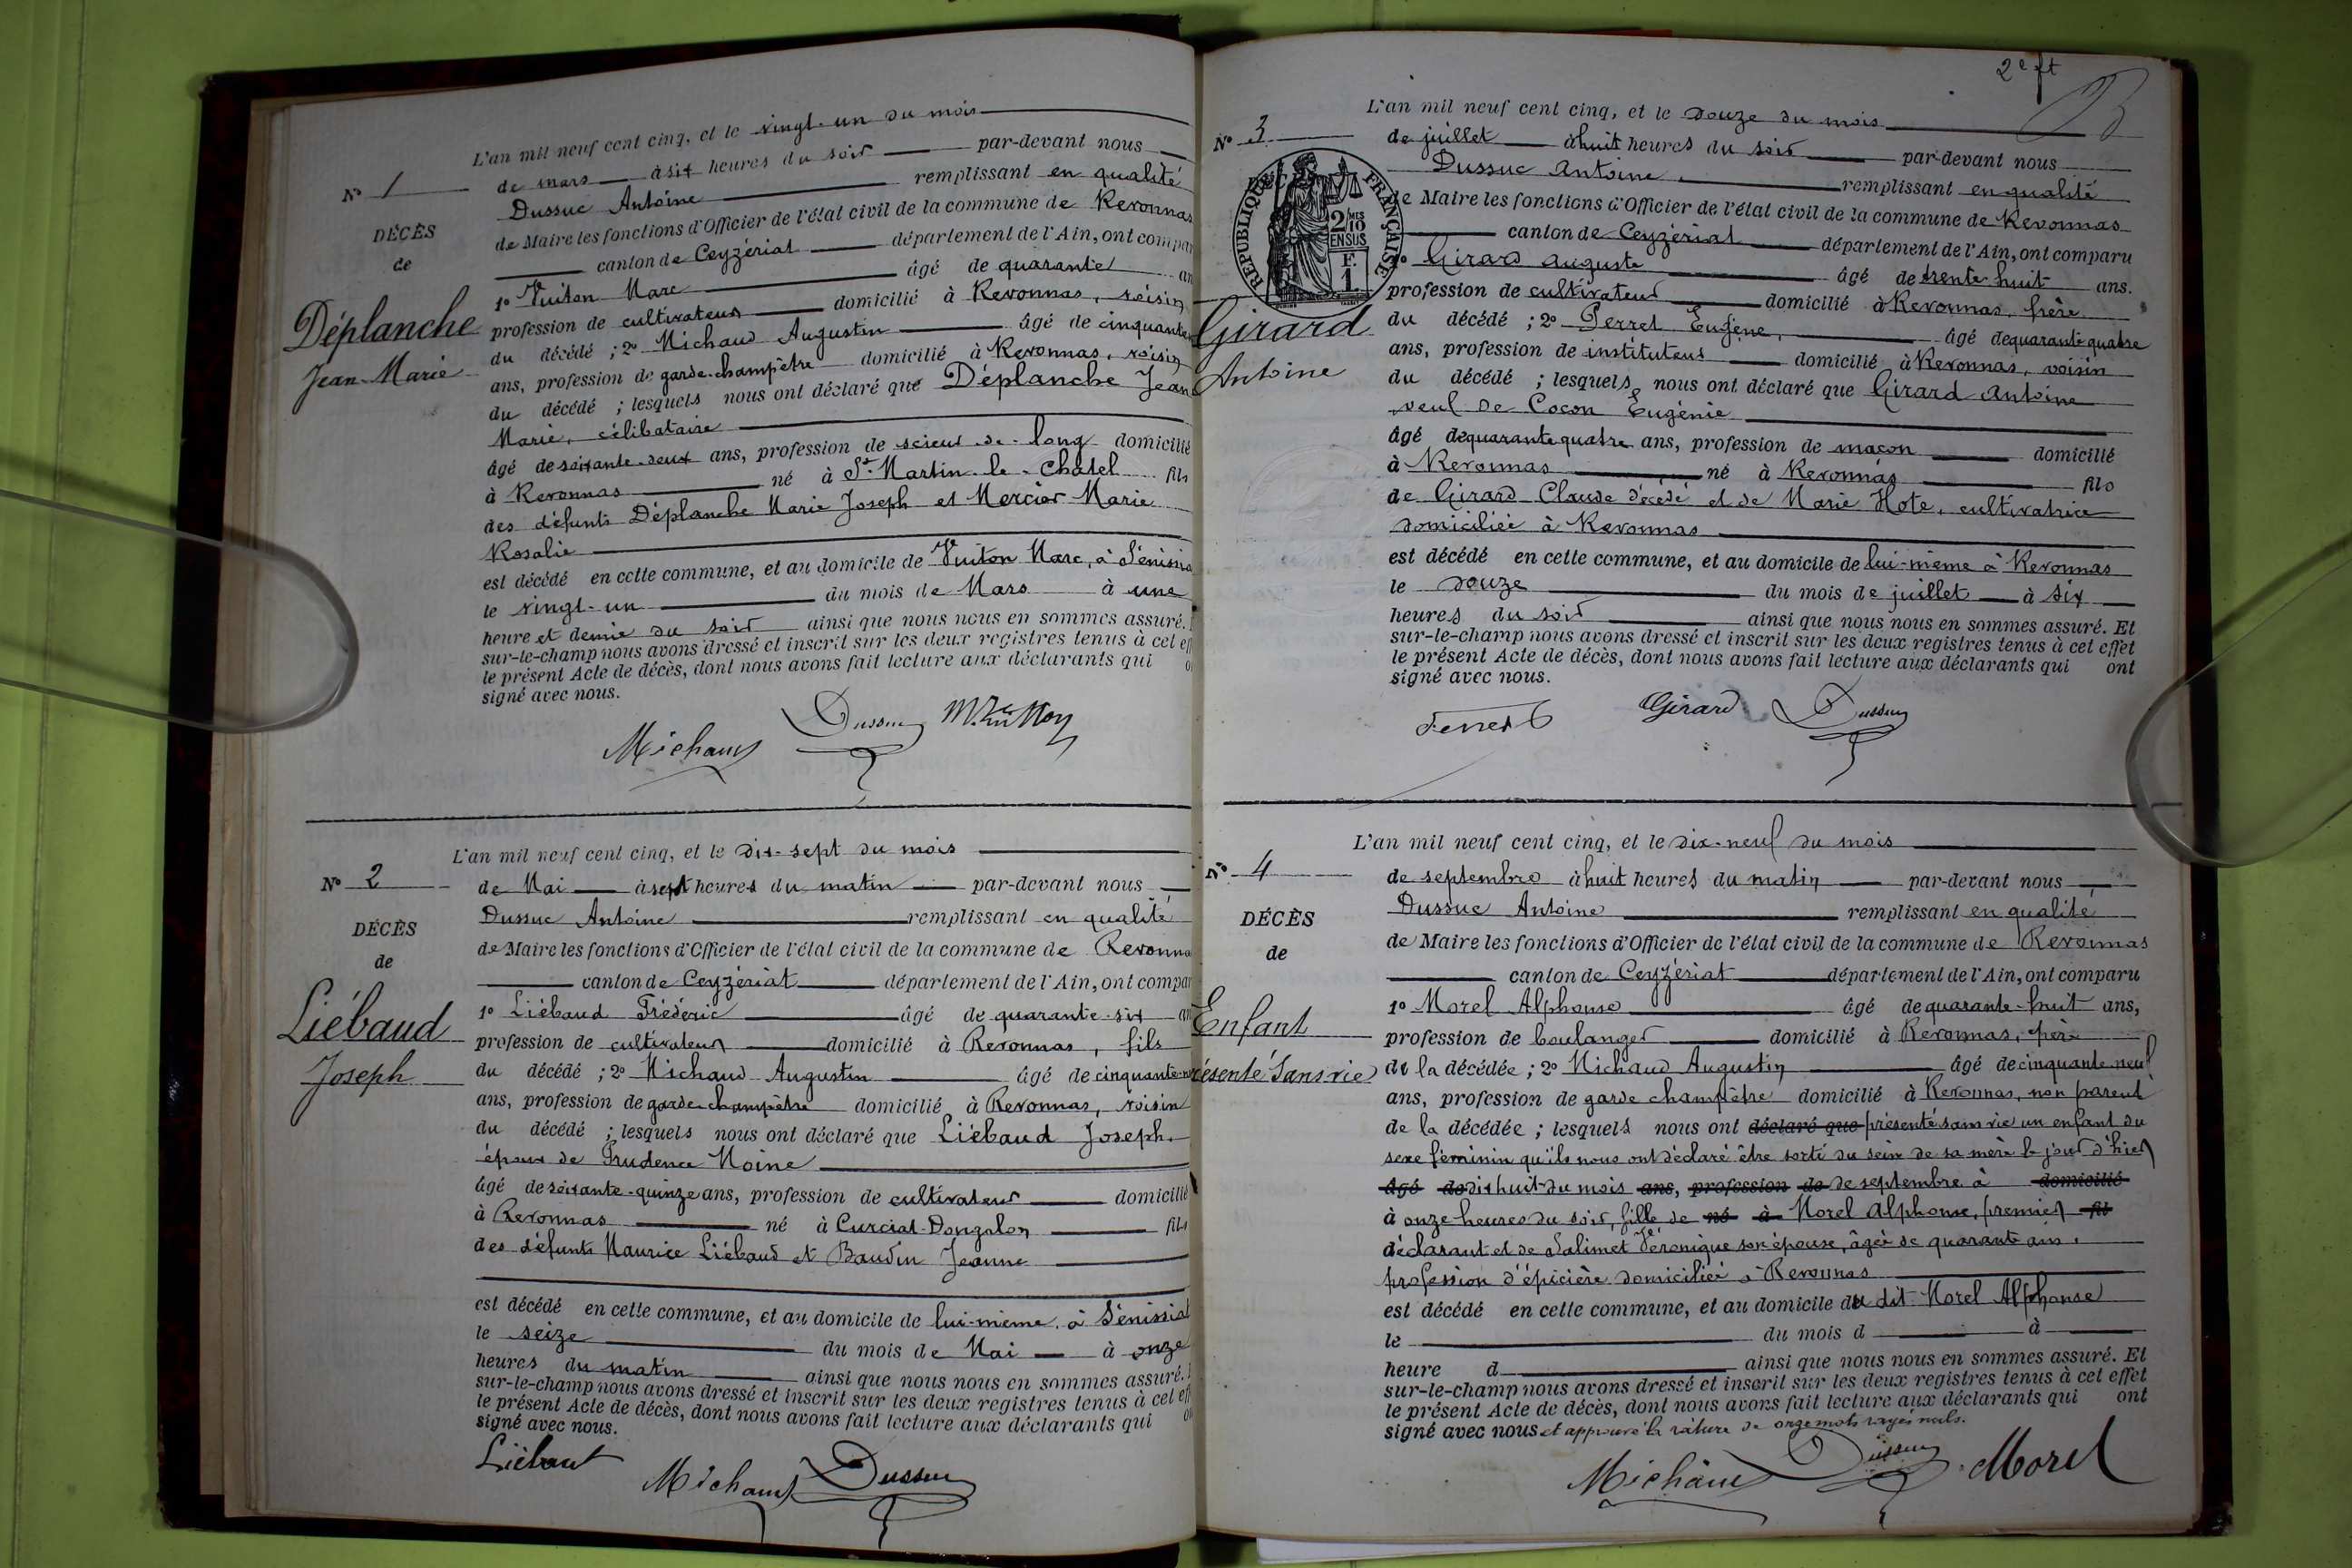 L'an mil neuf cent cinq, et le vingt-un du mois
de mars à six heures du soir par-devant nous
Nº 1
Dussuc Antoine remplissant en qualité
DÉCÈS
de Maire les fonctions d'Officier de l'état civil de la commune de Revonnas
de
canton de Ceyzériat département de l'Ain, ont compar
1º Vuiton Marc âgé de quarante an
Déplanche
profession de cultivateur domicilié à Revonnas, voisin
du décédé ; 2º Michaud Augustin âgé de cinquante
Jean-Marie
ans, profession de garde-champêtre domicilié à Revonnas, voisin
du décédé ; lesquels nous ont déclaré que Déplanche Jean
Marie, célibataire
âgé de soixante-deux ans, profession de scieur-de-long domicilié
à Revonnas né à St-Martin-le-Chatel fils
des défunts Déplanche Marie Joseph et Mercier Marie
Rosalie
est décédé en cette commune, et au domicile de Vuiton Marc, à Sénissia
le vingt-un du mois de Mars à une
heure et demie du soir ainsi que nous nous en sommes assuré.
sur-le-champ nous avons dressé et inscrit sur les deux registres tenus à cet eff
le présent Acte de décès, dont nous avons fait lecture aux déclarants qui o
signé avec nous.
Michaud Dussuc
L'an mil neuf cent cinq, et le dix-sept du mois
Nº 2
de Mai à sept heures du matin par-devant nous
Dussuc Antoine remplissant en qualité
DÉCÈS
de Maire les fonctions d'Officier de l'état civil de la commune de Revonna
de
canton de Ceyzériat département de l'Ain, ont compar
1º Liébaud Frédéric âgé de quarante-six an
Liébaud
profession de cultivateur domicilié à Revonnas, fils
Joseph
du décédé ; 2º Michaud Augustin âgé de cinquante-n
ans, profession de garde champêtre domicilié à Revonnas, voisin
du décédé ; lesquels nous ont déclaré que Liébaud Joseph
époux de Prudence Moine
âgé de soixante-quinze ans, profession de cultivateur domicilié
à Revonnas né à Curciat-Dongalon fils
des défunts Maurice Liébaud et Baudin Jeanne
est décédé en cette commune, et au domicile de lui-même, à Sénissiat
le seize du mois de Mai à onze
heures du matin ainsi que nous nous en sommes assuré.
sur-le-champ nous avons dressé et inscrit sur les deux registres tenus à cet eff
le présent Acte de décès, dont nous avons fait lecture aux déclarants qui on
signé avec nous.
Liébaut Michaud Dussuc
2e ft
L'an mil neuf cent cinq, et le douze du mois
Nº 3
de juillet à huit heures du soir par-devant nous
Dussuc Antoine remplissant en qualité
de Maire les fonctions d'Officier de l'état civil de la commune de Revonnas
RÉPUBLIQUE FRANÇAISE
2/10 MES EN SUS
F. 1
canton de Ceyzériat département de l'Ain, ont comparu
1º Girard Auguste âgé de trente huit ans.
profession de cultivateur domicilié à Revonnas, frère
Girard
du décédé ; 2º Perret Eugène, âgé de quarante quatre
Antoine
ans, profession de instituteur domicilié à Revonnas, voisin
du décédé ; lesquels nous ont déclaré que Girard Antoine
veuf de Cocon Eugénie
âgé de quarante quatre ans, profession de maçon domicilié
à Revonnas né à Revonnas fils
de Girard Claude décédé et de Marie Hote, cultivatrice
domiciliée à Revonnas
est décédé en cette commune, et au domicile de lui-même à Revonnas
le douze du mois de juillet à six
heures du soir ainsi que nous nous en sommes assuré. Et
sur-le-champ nous avons dressé et inscrit sur les deux registres tenus à cet effet
le présent Acte de décès, dont nous avons fait lecture aux déclarants qui ont
signé avec nous.
Perret Girard Dussuc
L'an mil neuf cent cinq, et le dix-neuf du mois
Nº 4
de septembre à huit heures du matin par-devant nous
Dussuc Antoine remplissant en qualité
DÉCÈS
de Maire les fonctions d'Officier de l'état civil de la commune de Revonnas
de
canton de Ceyzériat département de l'Ain, ont comparu
1º Morel Alphonse âgé de quarante-huit ans,
Enfant
profession de boulanger domicilié à Revonnas, père
résenté Sans vie
de la décédée ; 2º Michaud Augustin âgé de cinquante-neuf
ans, profession de garde champêtre domicilié à Revonnas, non parent
de la décédée ; lesquels nous ont déclaré que présenté sans vie un enfant du
sexe féminin qu'ils nous ont déclaré être sorti du sein de sa mère le jour d'hier
âgé de dix huit du mois ans, profession de de septembre à domicilié
à onze heures du soir, fille de né à Morel Alphonse, premier fils
déclarant et de Salimet Véronique son épouse, âgée de quarante ans.
profession d'épicière domiciliée à Revonnas
est décédé en cette commune, et au domicile du dit Morel Alphonse
le du mois d à
heure d ainsi que nous nous en sommes assuré. Et
sur-le-champ nous avons dressé et inscrit sur les deux registres tenus à cet effet
le présent Acte de décès, dont nous avons fait lecture aux déclarants qui ont
signé avec nous et approuvé la rature de onze mots rayés nuls.
Michaud Dussuc Morel